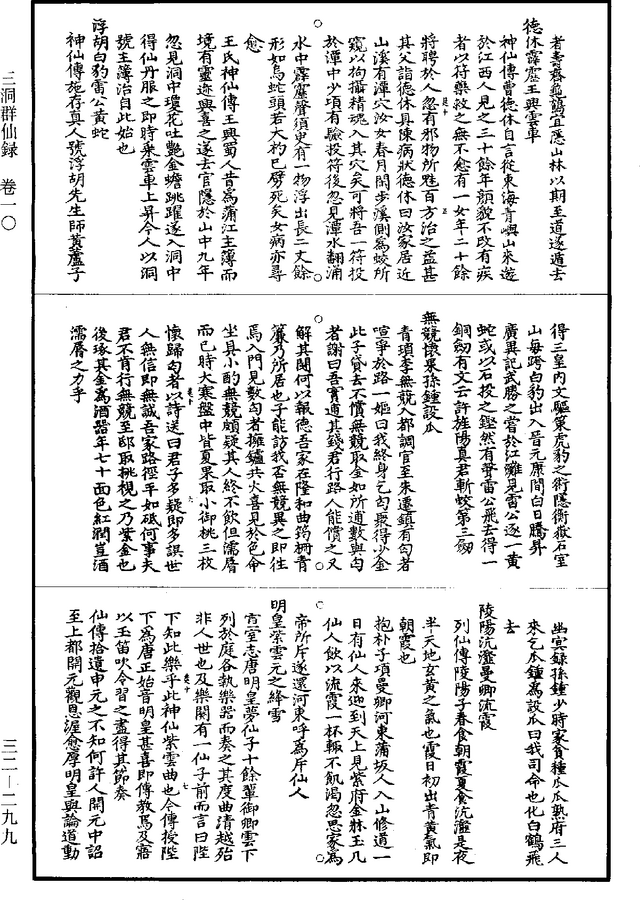 三洞群仙録　卷一〇
三二—二九九
者壽齊龜鶴宜隱山林以期至道遂遁去
德休霹靂王興雲車
神仙傳曹德休自言從東海青嶼山來遊
於江西人見之三十餘年顏貌不改有疾
者以符藥救之無不愈有一女年二十餘
將聘於人忽有邪物所魅百方治之益甚
其父詣德休具陳病狀德休曰汝家居近
山溪有潭穴汝女春月閑步溪側爲蛟所
窺以拘攝精魂入其穴矣可將吾一符投
於潭中少頃有驗投符後忽見潭水翻涌
水中霹靂聲須臾有一物浮出長二丈餘
形如烏蛇頭若大杓已劈死矣女病亦尋
愈
王氏神仙傳王興蜀人昔爲蒲江主簿而
境有靈迹興喜之遂去官隱於山中九年
忽見洞中瓊花吐艷金蟾跳躍遂入洞中
得仙丹服之即時乘雲車上昇今人以洞
號主簿治自此始也
浮胡白豹雷公黃蛇
神仙傳施存真人號浮胡先生師黃蘆子
得三皇內文驅策虎豹之術隱衡嶽石室
山每跨白豹出入晉元康間白日騰昇
廣異記武勝之嘗於江灘見雷公逐一黃
蛇或以石投之鏗然有聲雷公飛去得一
銅劒有文云許旌陽真君斬蛟第三劒
無競懷果孫鍾設瓜
青瑣李無競入都調官至朱遷鎮有匄者
喧寧於路一嫗曰我終身乞匄聚得少金
此子貸去不償無競取金如所逋數與匄
者謝曰吾實逋其錢君行路人能償之又
解其鬭何以報德吾家在隆和曲筠柵青
簾乃所居也子能訪我否無競異之即往
焉入門見數匄者擁鑪共火喜見於色命
坐具小酌無競頗疑其人終不飲但濡脣
而已時大寒盤中皆夏果取小御桃三枚
懷歸匄者以詩送曰君子多疑即多誤世
人無信即無誠吾家路徑平如砥何事夫
君不肯行無競至邸取桃視之乃紫金也
後琢其金爲酒器年七十面色紅潤豈酒
濡脣之力乎
幽冥録孫鍾少時家貧種瓜瓜熟府三人
來乞瓜鍾爲設瓜曰我司命也化白鶴飛
去
陵陽沆瀣曼卿流霞
列仙傳陵陽子春食朝霞夏食沆瀣是夜
半天地玄黃之氣也霞日初出青黃氣即
朝霞也
抱朴子項曼卿河東蒲坂人入山修道一
日有仙人來迎到天上見紫府金牀玉几
仙人飲以流霞一杯輒不飢渴忽思家爲
帝所斥遂還河東呼爲斥仙人
明皇紫雲元之絳雪
宣室志唐明皇夢仙子十餘輩御卿雲下
列於庭各執樂器而奏之其度曲清越殆
非人世也及樂闋有一仙子前而言曰陛
下知此樂乎此神仙紫雲曲也今傳授陛
下爲唐正始音明皇甚喜即傳教焉及寤
以玉笛吹令習之盡得其節奏
仙傳拾遺申元之不知何許人開元中詔
至上都開元觀恩渥愈厚明皇與論道動